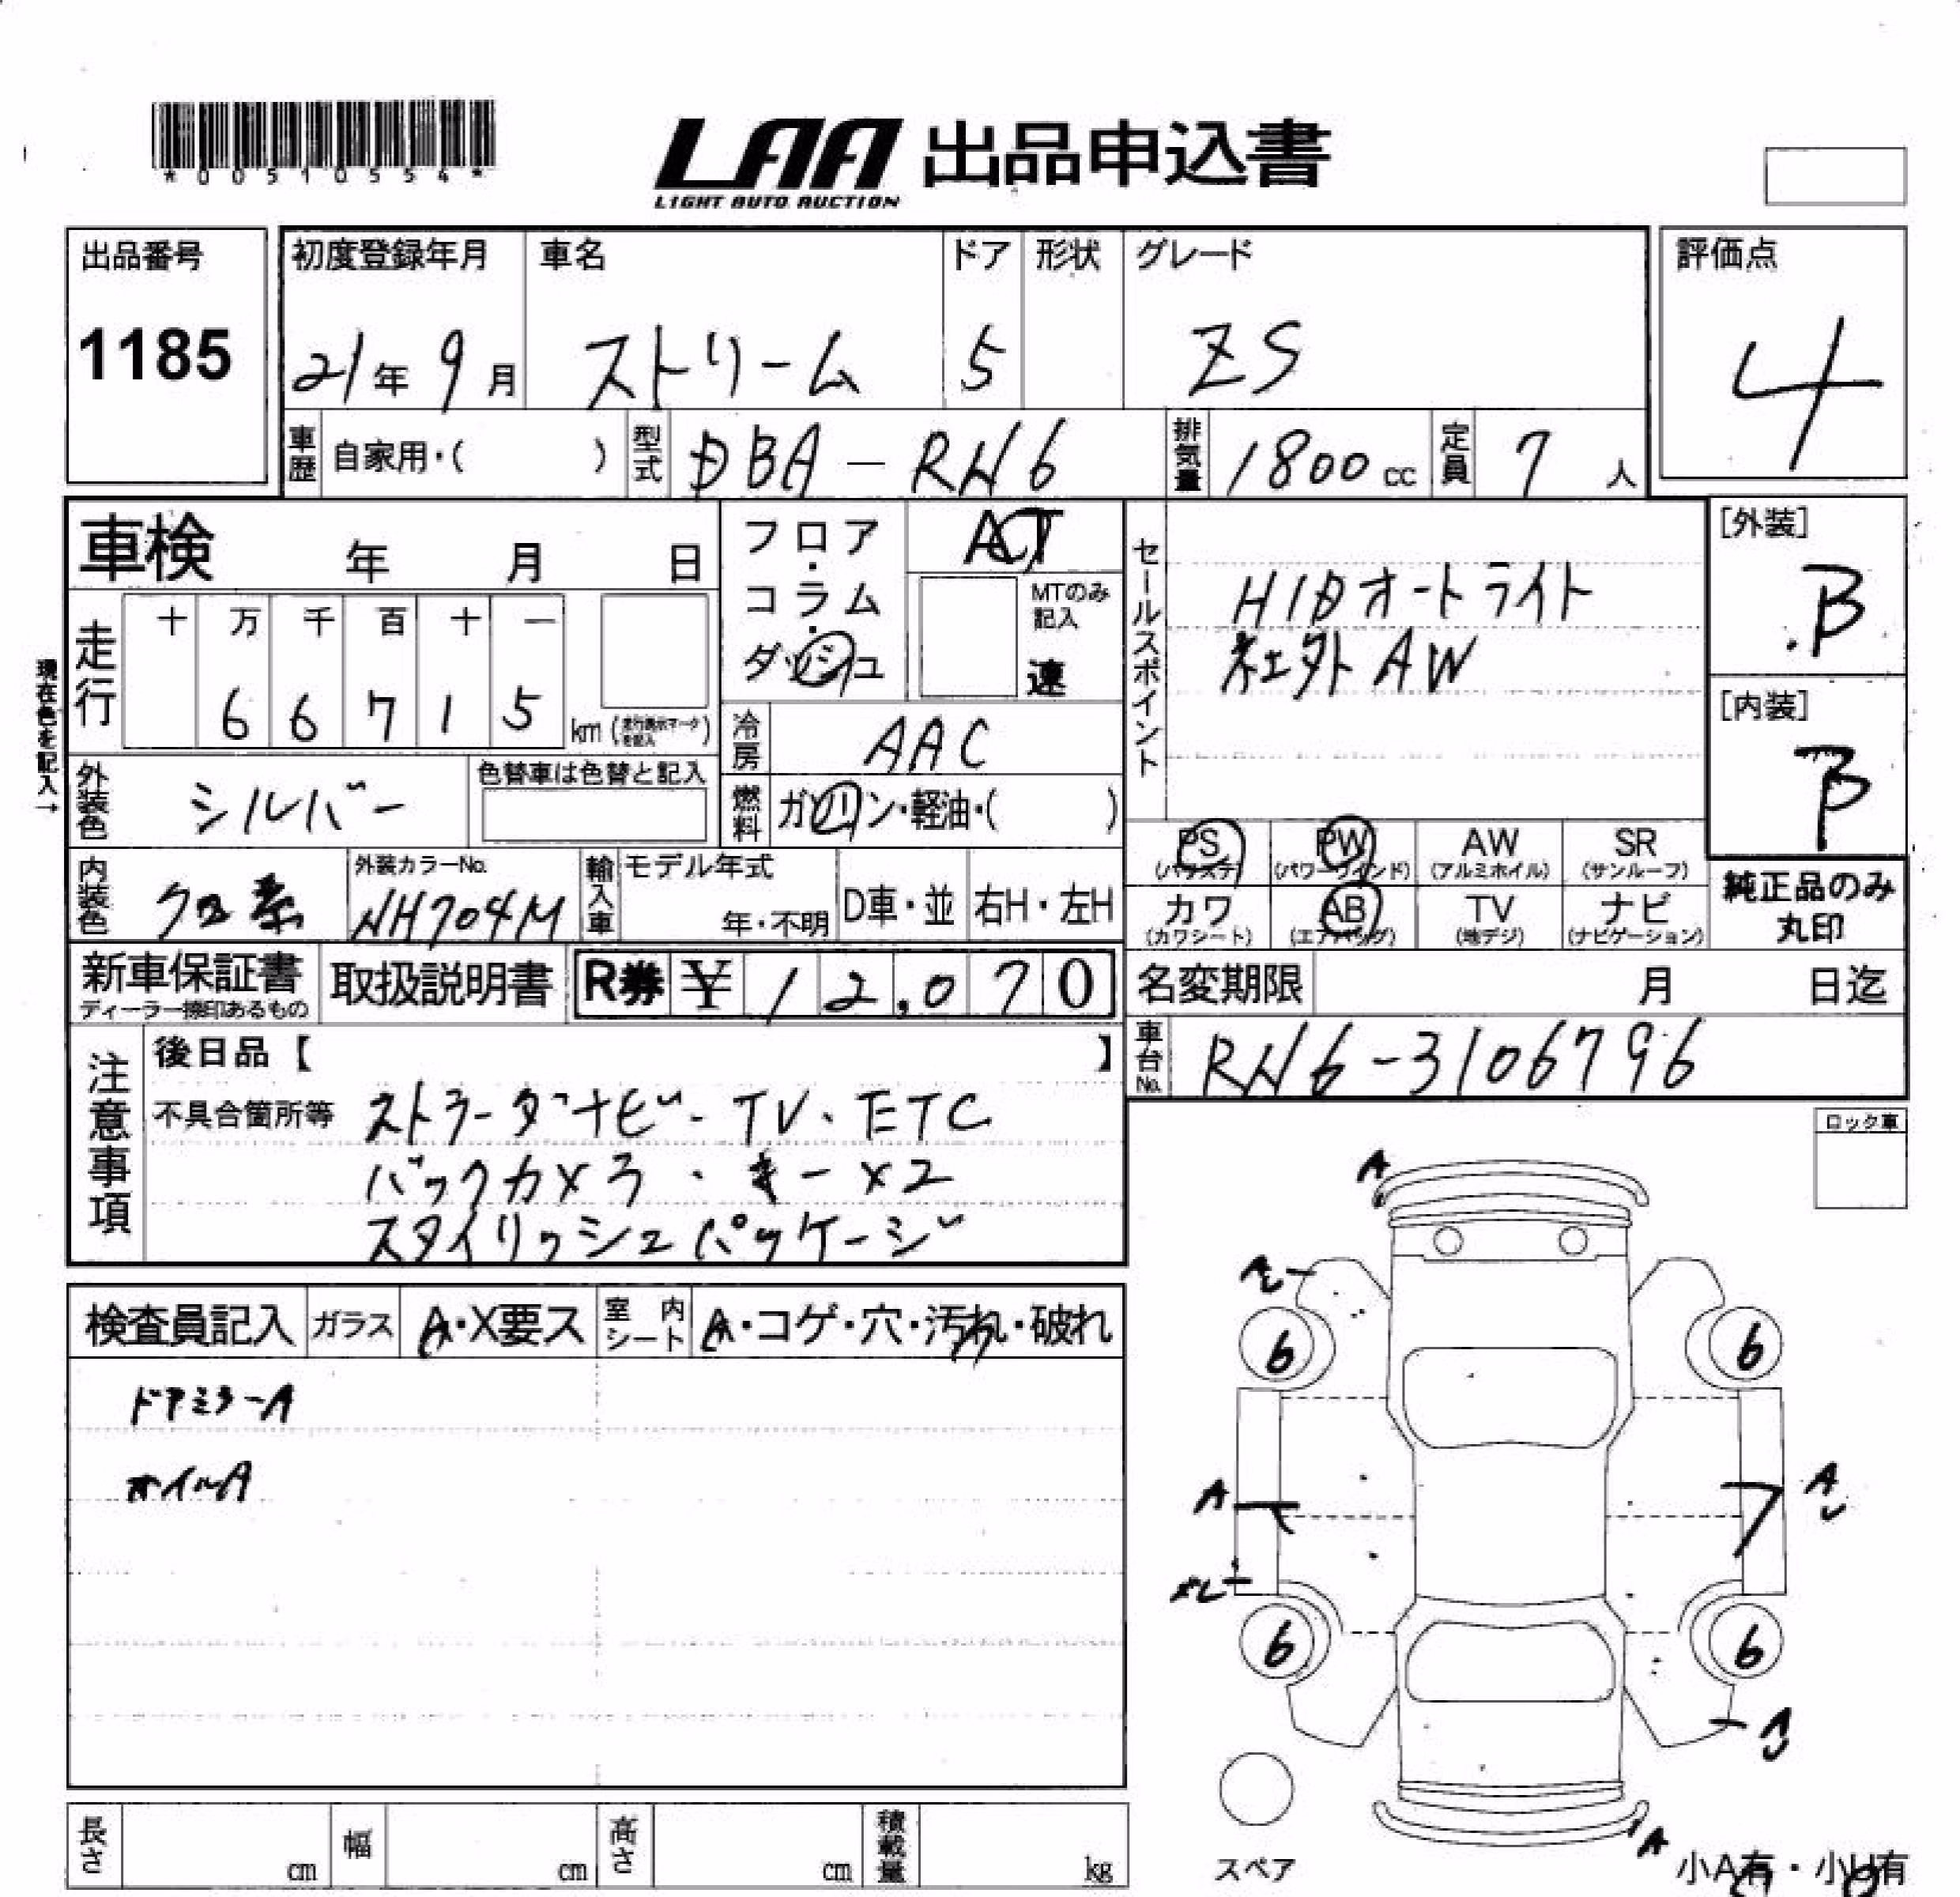 *00510554*
LAA 出品申込書
LIGHT AUTO AUCTION
出品番号
1185
初度登録年月
21年 9月
車名
ストリーム
ドア
5
形状
グレード
ZS
評価点
4
車歴 自家用・( )
型式 DBA-RN6
排気量 1800 cc
定員 7 人
車検 年 月 日
フロア・コラム・ダッシュ
AT
MTのみ記入
速
セールスポイント
HIDオートライト
社外AW
[外装]
B
[内装]
B
現在色を記入→
走行 十 万 千 百 十 一
6 6 7 1 5 km (走行表示マークを記入)
冷房 AAC
外装色 シルバー
色替車は色替と記入
燃料 ガソリン・軽油・( )
PS (パワステ)
PW (パワーウインド)
AW (アルミホイル)
SR (サンルーフ)
カワ (カワシート)
AB (エアバッグ)
TV (地デジ)
ナビ (ナビゲーション)
純正品のみ
丸印
内装色 クロ系
外装カラーNo.
NH704M
輸入車 モデル年式
年・不明
D車・並
右H・左H
新車保証書
ディーラー捺印あるもの
取扱説明書
R券 ¥ 12,070
名変期限 月 日迄
車台No. RN6-3106796
注意事項
後日品【 】
不具合箇所等 ストラーダナビ・TV・ETC
バックカメラ・キー×2
スタイリッシュパッケージ
ロック車
検査員記入
ガラス A・X要ス
室内シート A・コゲ・穴・汚れ・破れ
ドアミラーA
オイルA
A
A
6
6
A
A
6
6
A
スペア
小A有・小U有
長さ cm
幅 cm
高さ cm
積載量 kg